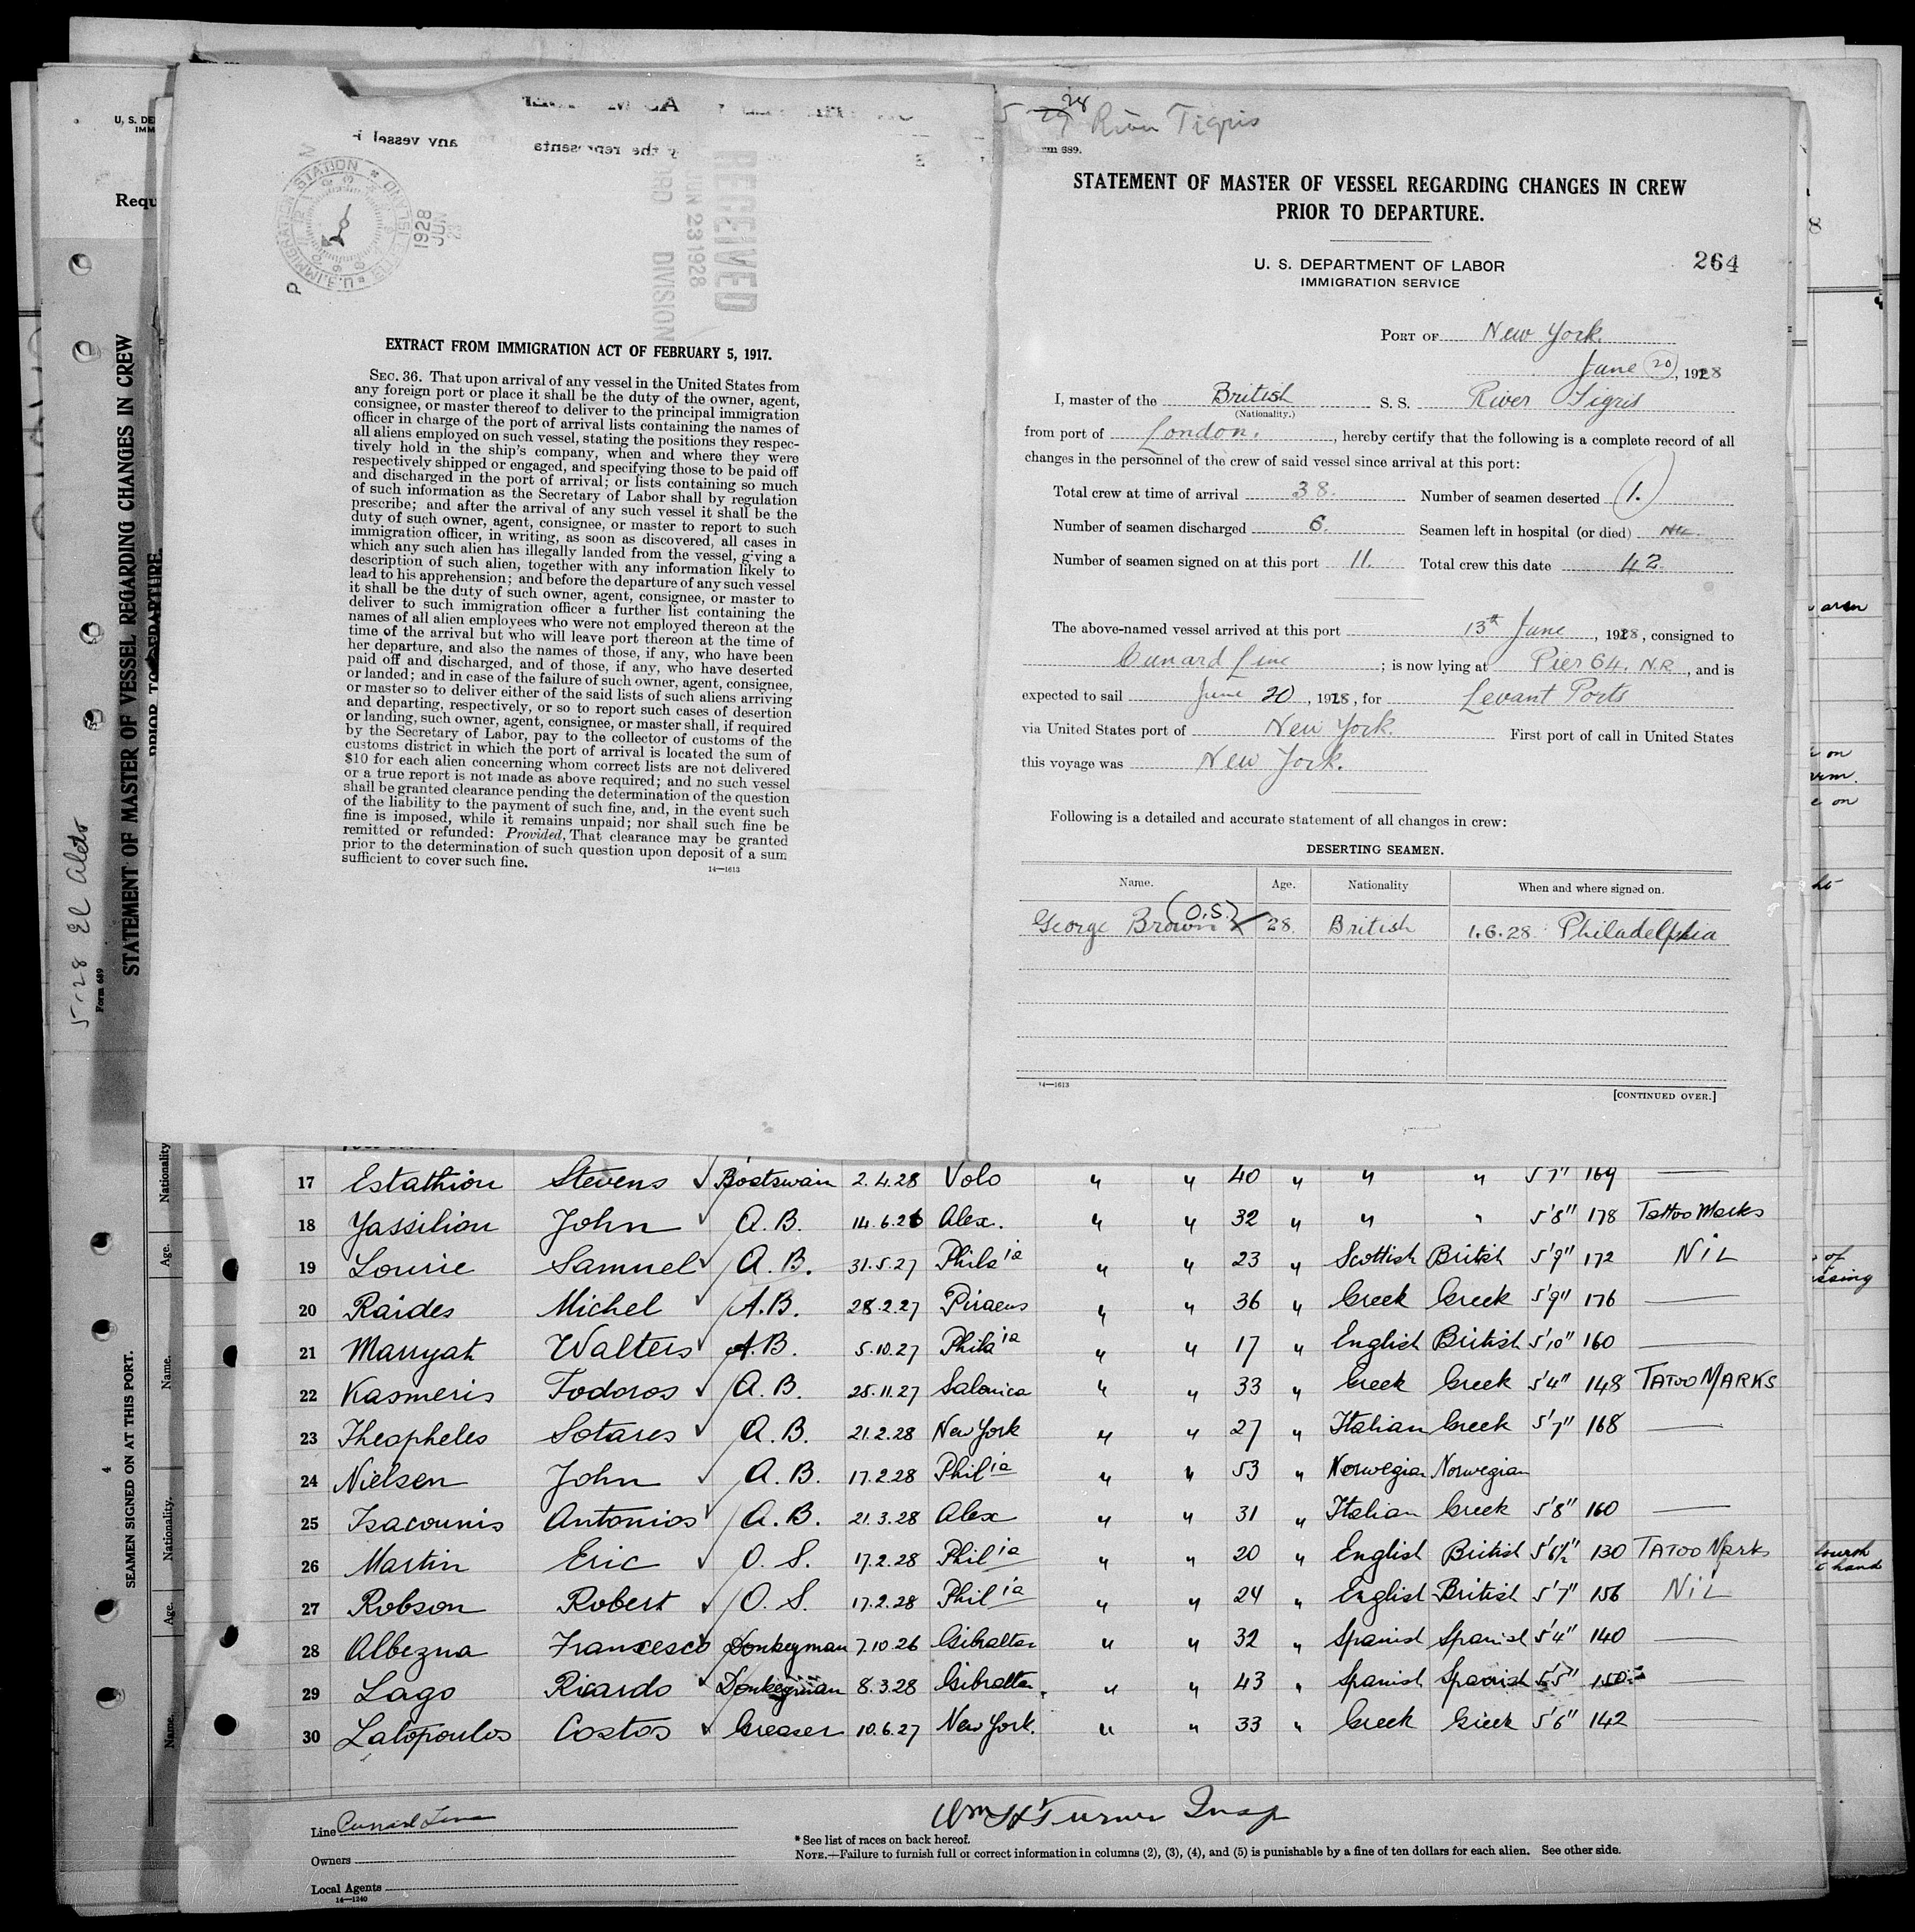 U. S. DE
IMM
Requ
5-28 El Aleto
Form 689
STATEMENT OF MASTER OF VESSEL REGARDING CHANGES IN CREW
PRIOR TO DEPARTURE.
SEAMEN SIGNED ON AT THIS PORT.
Name.
Age.
Nationality.
Name.
Age.
Nationality
any vessel i
y the representa
U.S. IMMIGRATION STATION
1928
JUN
RECEIVED
JUN 23 1928
ORD DIVISION
EXTRACT FROM IMMIGRATION ACT OF FEBRUARY 5, 1917.
SEC. 36. That upon arrival of any vessel in the United States from
any foreign port or place it shall be the duty of the owner, agent,
consignee, or master thereof to deliver to the principal immigration
officer in charge of the port of arrival lists containing the names of
all aliens employed on such vessel, stating the positions they respec-
tively hold in the ship's company, when and where they were
respectively shipped or engaged, and specifying those to be paid off
and discharged in the port of arrival; or lists containing so much
of such information as the Secretary of Labor shall by regulation
prescribe; and after the arrival of any such vessel it shall be the
duty of such owner, agent, consignee, or master to report to such
immigration officer, in writing, as soon as discovered, all cases in
which any such alien has illegally landed from the vessel, giving a
description of such alien, together with any information likely to
lead to his apprehension; and before the departure of any such vessel
it shall be the duty of such owner, agent, consignee, or master to
deliver to such immigration officer a further list containing the
names of all alien employees who were not employed thereon at the
time of the arrival but who will leave port thereon at the time of
her departure, and also the names of those, if any, who have been
paid off and discharged, and of those, if any, who have deserted
or landed; and in case of the failure of such owner, agent, consignee,
or master so to deliver either of the said lists of such aliens arriving
and departing, respectively, or so to report such cases of desertion
or landing, such owner, agent, consignee, or master shall, if required
by the Secretary of Labor, pay to the collector of customs of the
customs district in which the port of arrival is located the sum of
$10 for each alien concerning whom correct lists are not delivered
or a true report is not made as above required; and no such vessel
shall be granted clearance pending the determination of the question
of the liability to the payment of such fine, and, in the event such
fine is imposed, while it remains unpaid; nor shall such fine be
remitted or refunded: Provided, That clearance may be granted
prior to the determination of such question upon deposit of a sum
sufficient to cover such fine.
14—1613
5 28 River Tigris
rm 689.
STATEMENT OF MASTER OF VESSEL REGARDING CHANGES IN CREW
PRIOR TO DEPARTURE.
U. S. DEPARTMENT OF LABOR
IMMIGRATION SERVICE
264
PORT OF New York.
June 20, 1928
I, master of the British S. S. River Tigris
(Nationality.)
from port of London., hereby certify that the following is a complete record of all
changes in the personnel of the crew of said vessel since arrival at this port:
Total crew at time of arrival 38. Number of seamen deserted 1.
Number of seamen discharged 6. Seamen left in hospital (or died) Nil.
Number of seamen signed on at this port 11. Total crew this date 42
The above-named vessel arrived at this port 13th June, 1928, consigned to
Cunard Line; is now lying at Pier 64. N.R, and is
expected to sail June 20, 1928, for Levant Ports
via United States port of New York. First port of call in United States
this voyage was New York.
Following is a detailed and accurate statement of all changes in crew:
DESERTING SEAMEN.
Name. Age. Nationality When and where signed on.
George Brown (O.S.) 28. British 1.6.28 Philadelphia
14—1613
[CONTINUED OVER.]
17 Estathiou Stevens Boatswain 2.4.28 Volo " " 40 " " " 5'7" 169 —
18 Yassiliou John A.B. 14.6.26 Alex. " " 32 " " " 5'8" 178 Tattoo Marks
19 Lourie Samuel A.B. 31.5.27 Phila ia " " 23 " Scottish British 5'9" 172 NiL
20 Raides Michel A.B. 28.2.27 Piraeus " " 36 " Greek Greek 5'9" 176 —
21 Marryah Walters A.B. 5.10.27 Phila ia " " 17 " English British 5'10" 160 —
22 Kasmeris Todoros A.B. 25.11.27 Salonica " " 33 " Greek Greek 5'4" 148 TATOO MARKS
23 Theopheles Sotares A.B. 21.2.28 New York " " 27 " Italian Greek 5'7" 168 —
24 Nielsen John A.B. 17.2.28 Phil ia " " 53 " Norwegian Norwegian
25 Isacounis Antonios A.B. 21.3.28 Alex " " 31 " Italian Greek 5'8" 160 —
26 Martin Eric O.S. 17.2.28 Phil ia " " 20 " English British 5'6½" 130 TATOO Marks
27 Robson Robert O.S. 17.2.28 Phil ia " " 24 " English British 5'7" 156 NiL
28 Albezna Francesco Donkeyman 7.10.26 Gibraltar " " 32 " Spanish Spanish 5'4" 140 —
29 Lago Ricardo Donkeyman 8.3.28 Gibraltar. " " 43 " Spanish Spanish 5'5" 150 —
30 Latopoulos Costos Greaser 10.6.27 New York. " " 33 " Greek Greek 5'6" 142 —
Line Cunard Line
Owners
Local Agents
14—1240
Wm H Turner Insp
* See list of races on back hereof.
NOTE.—Failure to furnish full or correct information in columns (2), (3), (4), and (5) is punishable by a fine of ten dollars for each alien. See other side.